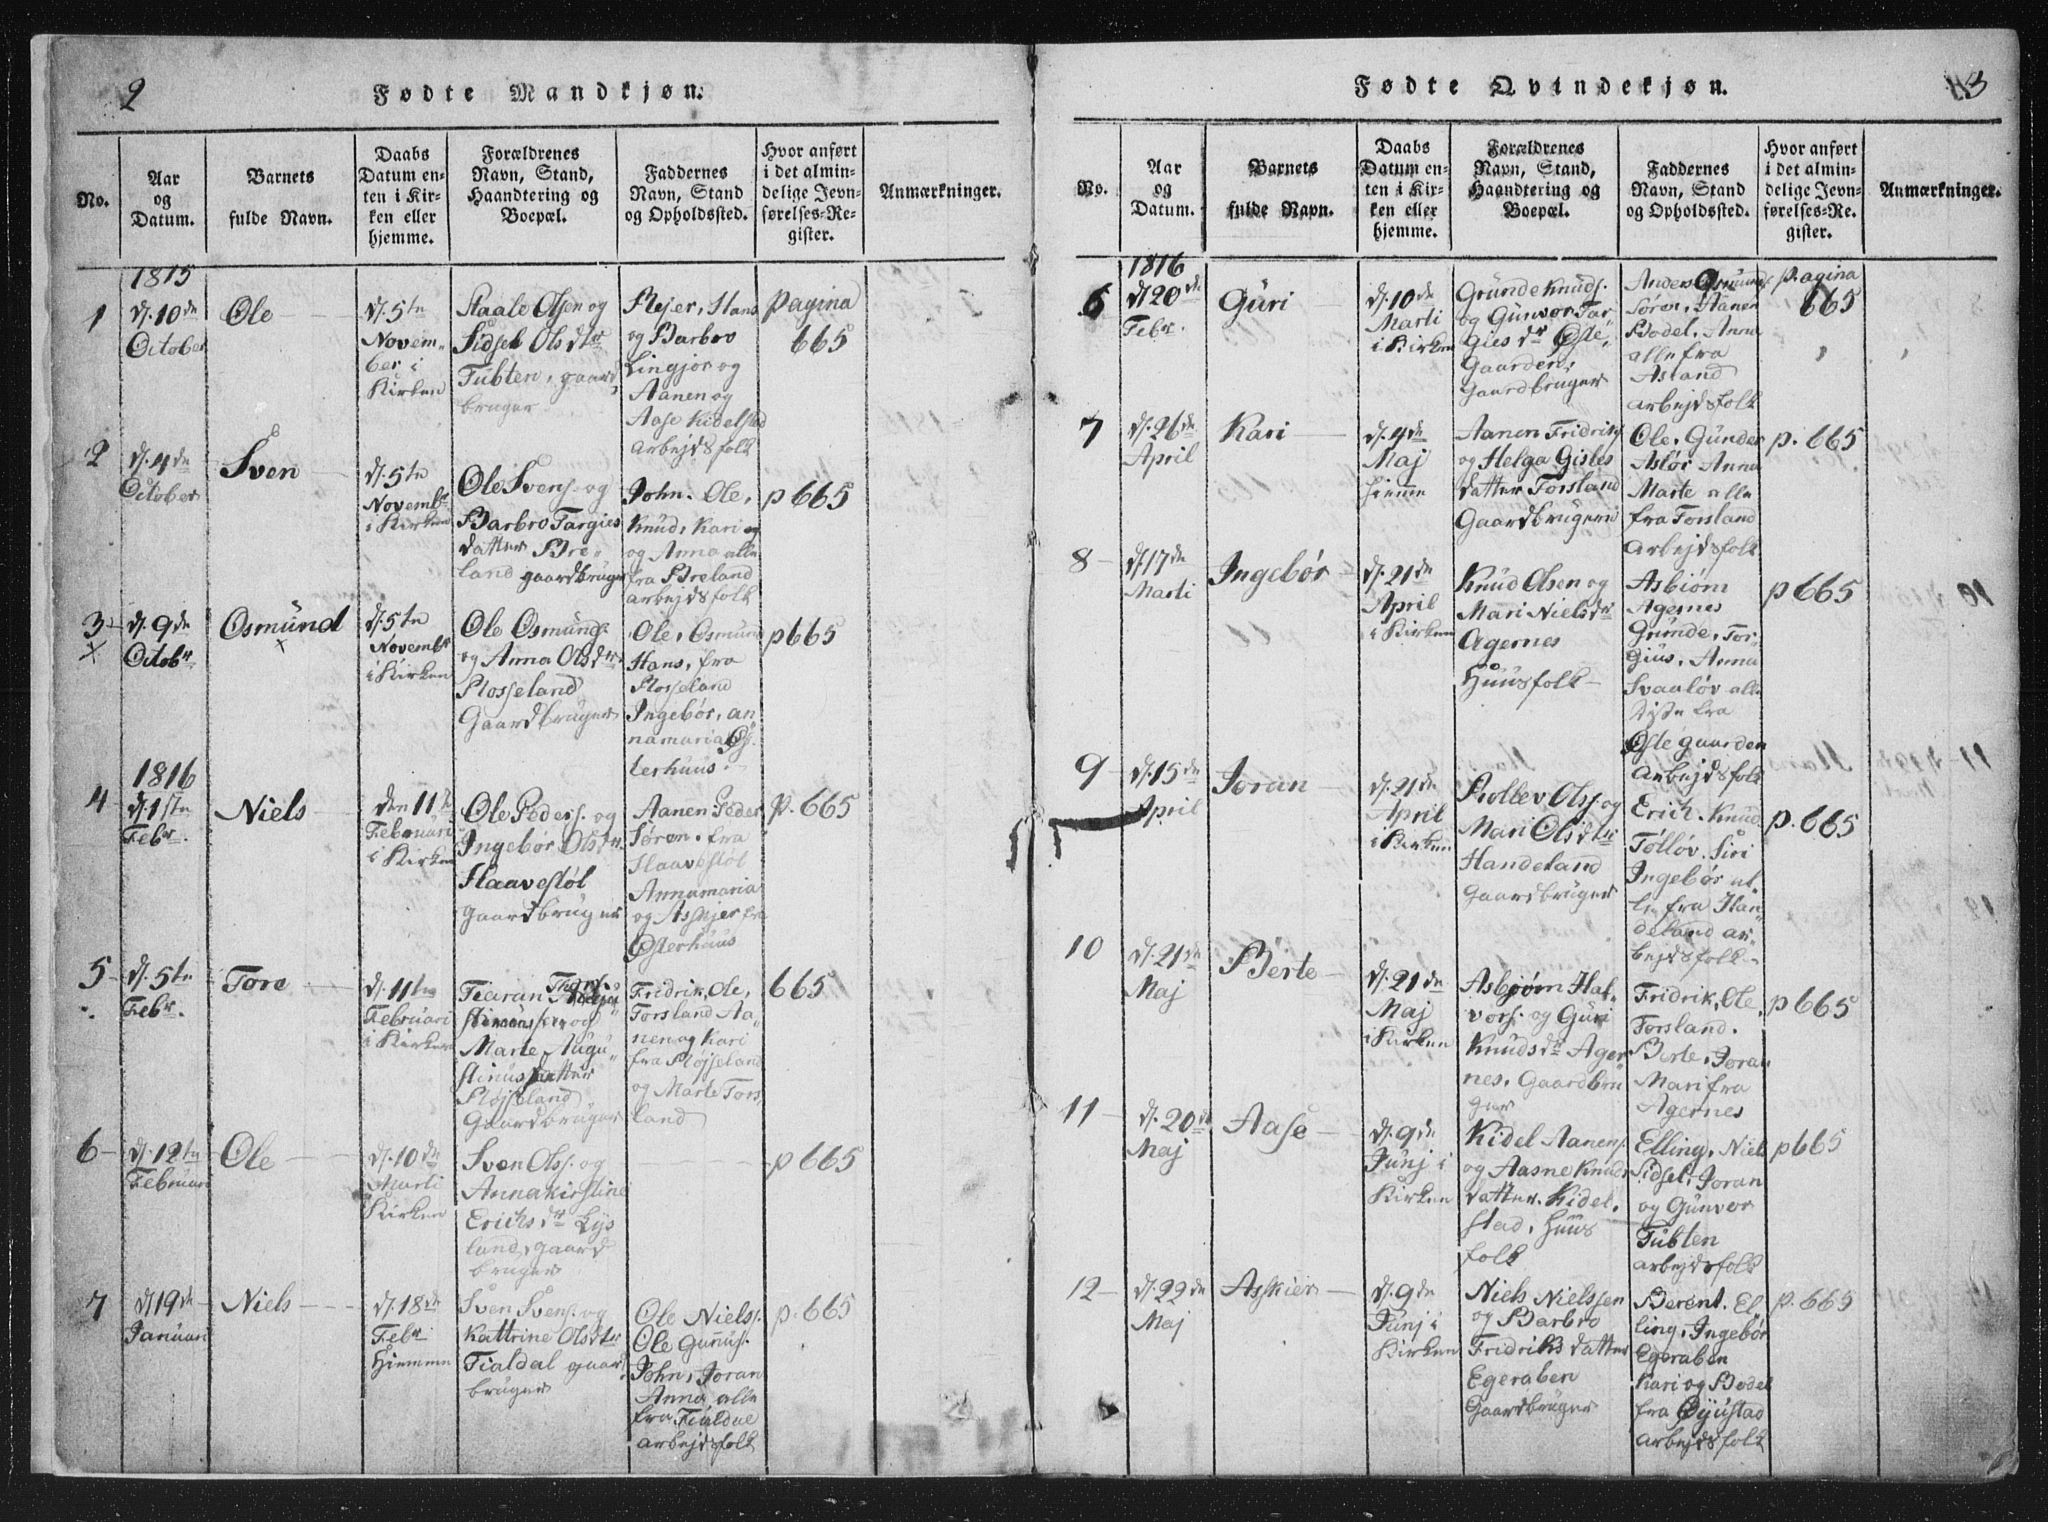 2
Fødte Mandkjøn.
No.
Aar
og
Datum.
Barnets
fulde Navn.
Daabs
Datum en-
ten i Kir-
ken eller
hjemme.
Forældrenes
Navn, Stand,
Haandtering og
Boepæl.
Faddernes
Navn, Stand
og Opholdssted.
Hvor anført
i det almin-
delige Jevn-
førelses-Re-
gister.
Anmærkninger.
1815
1
d. 10de
October
Ole
d. 5te
Novem-
ber i
Kirken
Staale Olsen og
Sidsel Olsdtr
Tubten, gaard
bruger
Rejer, Hans
og Barbro
Lingjor og
Aanen og
Aase Kidelstad
arbejdsfolk
Pagina
665
2
d. 4de
October
Sven
d. 5te
Novembr
i Kirken
Ole Svens. og
Barbro Targies
datter Bre-
land gaardbruger
John. Ole,
Knud, Kari og
og Anna alle
fra Breland
arbejdsfolk
p 665
3
x
d. 9de
Octobr.
Osmünd
x
d. 5te
Novembr
i Kirken
Ole Osmunds.
og Anna Olsdtr
Flosseland
Gaardbruger
Ole, Osmund
Hans, fra
Flosseland
Ingebor, an-
namaria Øs-
terhuus.
p 665
1816
4
d. 1ste
Febr.
Niels
den 11te
Februari
i Kirken
Ole Peders. og
Ingebor Olsdtr.
Haavestøl
gaardbruger
Aanen Peder
Søren. fra
Haavestøl
Annamaria
og Askjer fra
Østerhuus
p. 665
5
d. 5te
Febr.
Tore
d. 11te
Februari
i Kirken
Tiaran
og
Marte Augu-
stinusdatter
Fløjseland
Gaardbruger
Fridrik, Ole,
Forsland Aa-
nen og Kari
fra Fløjseland
og Marte Fors
land
665
6
d. 12te
Februari
Ole
d. 10de
Marti
Kirken
Sven Olss. og
Annakirstine
Erichsdr Lys
land, gaard
bruger
p 665
7
d. 19de
Januari
Niels
d. 18de
Febri
Hiemme
Sven Svens. og
Kattrine Olsdtr
Fialdal gaard
bruger
Ole Niels.
Ole Gunus.
John, Joran
Anna, alle
fra Fialdal
arbejdsfolk
p. 665
3
Fødte Qvindekjøn.
No.
Aar
og
Datum.
Barnets
fulde Navn.
Daabs
Datum en-
ten i Kir-
ken eller
hjemme.
Forældrenes
Navn, Stand,
Haandtering og
Boepæl.
Faddernes
Navn, Stand
og Opholdssted.
Hvor anført
i det almin-
delige Jevn-
førelses-Re-
gister.
Anmærkninger.
1816
6
d. 20de
Febr.
Güri
d. 10de
Marti
i Kirken
Gründe Knuds.
og Gunvor Tar-
gies dr Øste-
Gaarden,
Gaardbruger
Anders Osmunds
Søren, Aanen
Bodel, Anna
alle fra
Asland
arbejdsfolk
Pagina
665
7
d. 26de
April
Kari
d. 4de
Maj
hiemme
Aanen Fridrik.
og Helga Gisles
datter Forsland
Gaardbrugeri
Ole, Günder
Aslør Anna
Marte alle
fra Forsland
arbejdsfolk
p. 665
8
d. 17de
Marti
Ingebør
d. 21de
April
i Kirken
Knud Olsen og
Mari Nielsdr
Agernes
Huusfolk
Asbiørn
Agernes
Gründe, Tor
gius, Anna
Svaaløv alle
disse fra
Østegaarden
arbejdsfolk
p 665
9
d. 15de
April
Joran
d. 21de
April
i Kirken
Rollev Olss. og
Mari Olsdtr
Handeland
Gaardbruger
Erich. Knud
Tolløv. Siri
Ingebør al-
le fra Han-
deland ar-
bejdsfolk
p. 665
10
d. 21de
Maj
Berte
d. 21de
Maj
i Kirken
Asbjørn Hal-
vors. og Güri
Knudsdr Ager
nes, Gaardbru
ger
Fridrik, Ole.
Forsland.
Berte, Joran
Mari fra
Agernes
p 665
11
d. 20de
Maj
Aase
d. 9de
Junj i
Kirken
Kidel Aanens.
og Aasne Knuds
datter Kidel-
stad, Huus
folk
Elling, Niels
Sidsel, Joran
og Günvor
Tubten
arbejdsfolk
p 665
12
d. 22de
Maj
Askier
d. 9de
Junj i
Kirken
Niels Nielssen
og Barbro
Fridriks datter
Egeraben
Gaardbruger
Berent. El
ling, Ingebør
Egeraben
Kari og Bodel
fra Øyustad
arbejdsfolk
p. 665